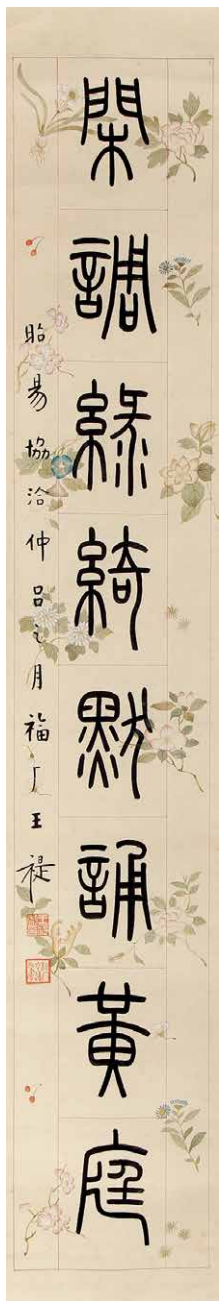 閑調綠綺默誦黃庭
昭昜協洽仲呂之月福厂王禔